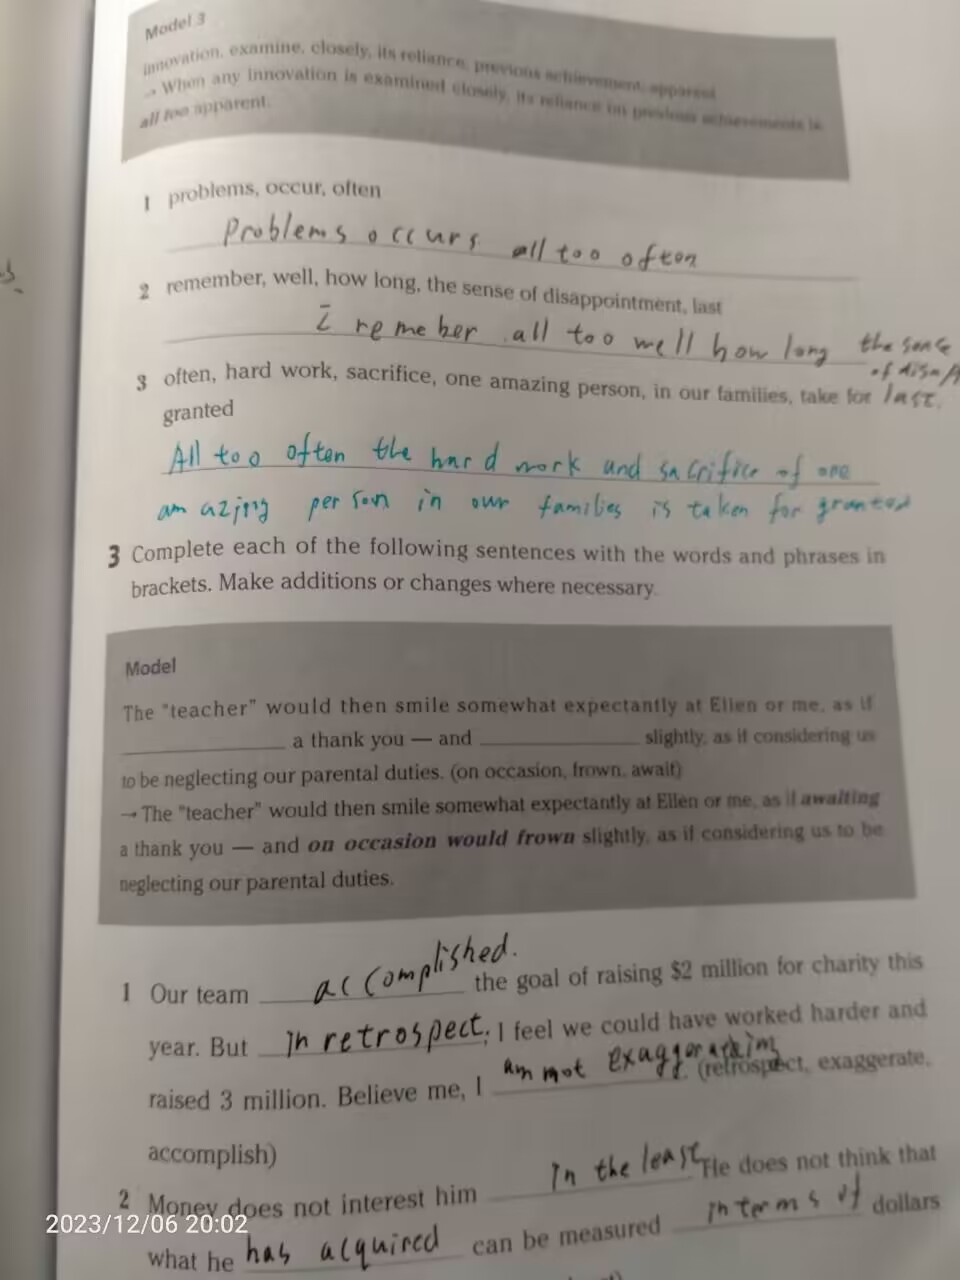 Model 3
innovation, examine, closely, its reliance, previous achievement, apparent
→ When any innovation is examined closely, its reliance on previous achievements is
all too apparent.
1 problems, occur, often
Problems occurs all too often
2 remember, well, how long, the sense of disappointment, last
I remember all too well how long the sense
of disap
last.
3 often, hard work, sacrifice, one amazing person, in our families, take for
granted
All too often the hard work and sacrifice of one
amazing person in our families is taken for granted
3 Complete each of the following sentences with the words and phrases in
brackets. Make additions or changes where necessary.
Model
The "teacher" would then smile somewhat expectantly at Ellen or me, as if
a thank you — and slightly, as if considering us
to be neglecting our parental duties. (on occasion, frown, await)
→ The "teacher" would then smile somewhat expectantly at Ellen or me, as if awaiting
a thank you — and on occasion would frown slightly, as if considering us to be
neglecting our parental duties.
1 Our team accomplished. the goal of raising $2 million for charity this
year. But in retrospect, I feel we could have worked harder and
raised 3 million. Believe me, I am not exaggerating. (retrospect, exaggerate,
accomplish)
2 Money does not interest him in the least. He does not think that
what he has acquired can be measured in terms of dollars
2023/12/06 20:02